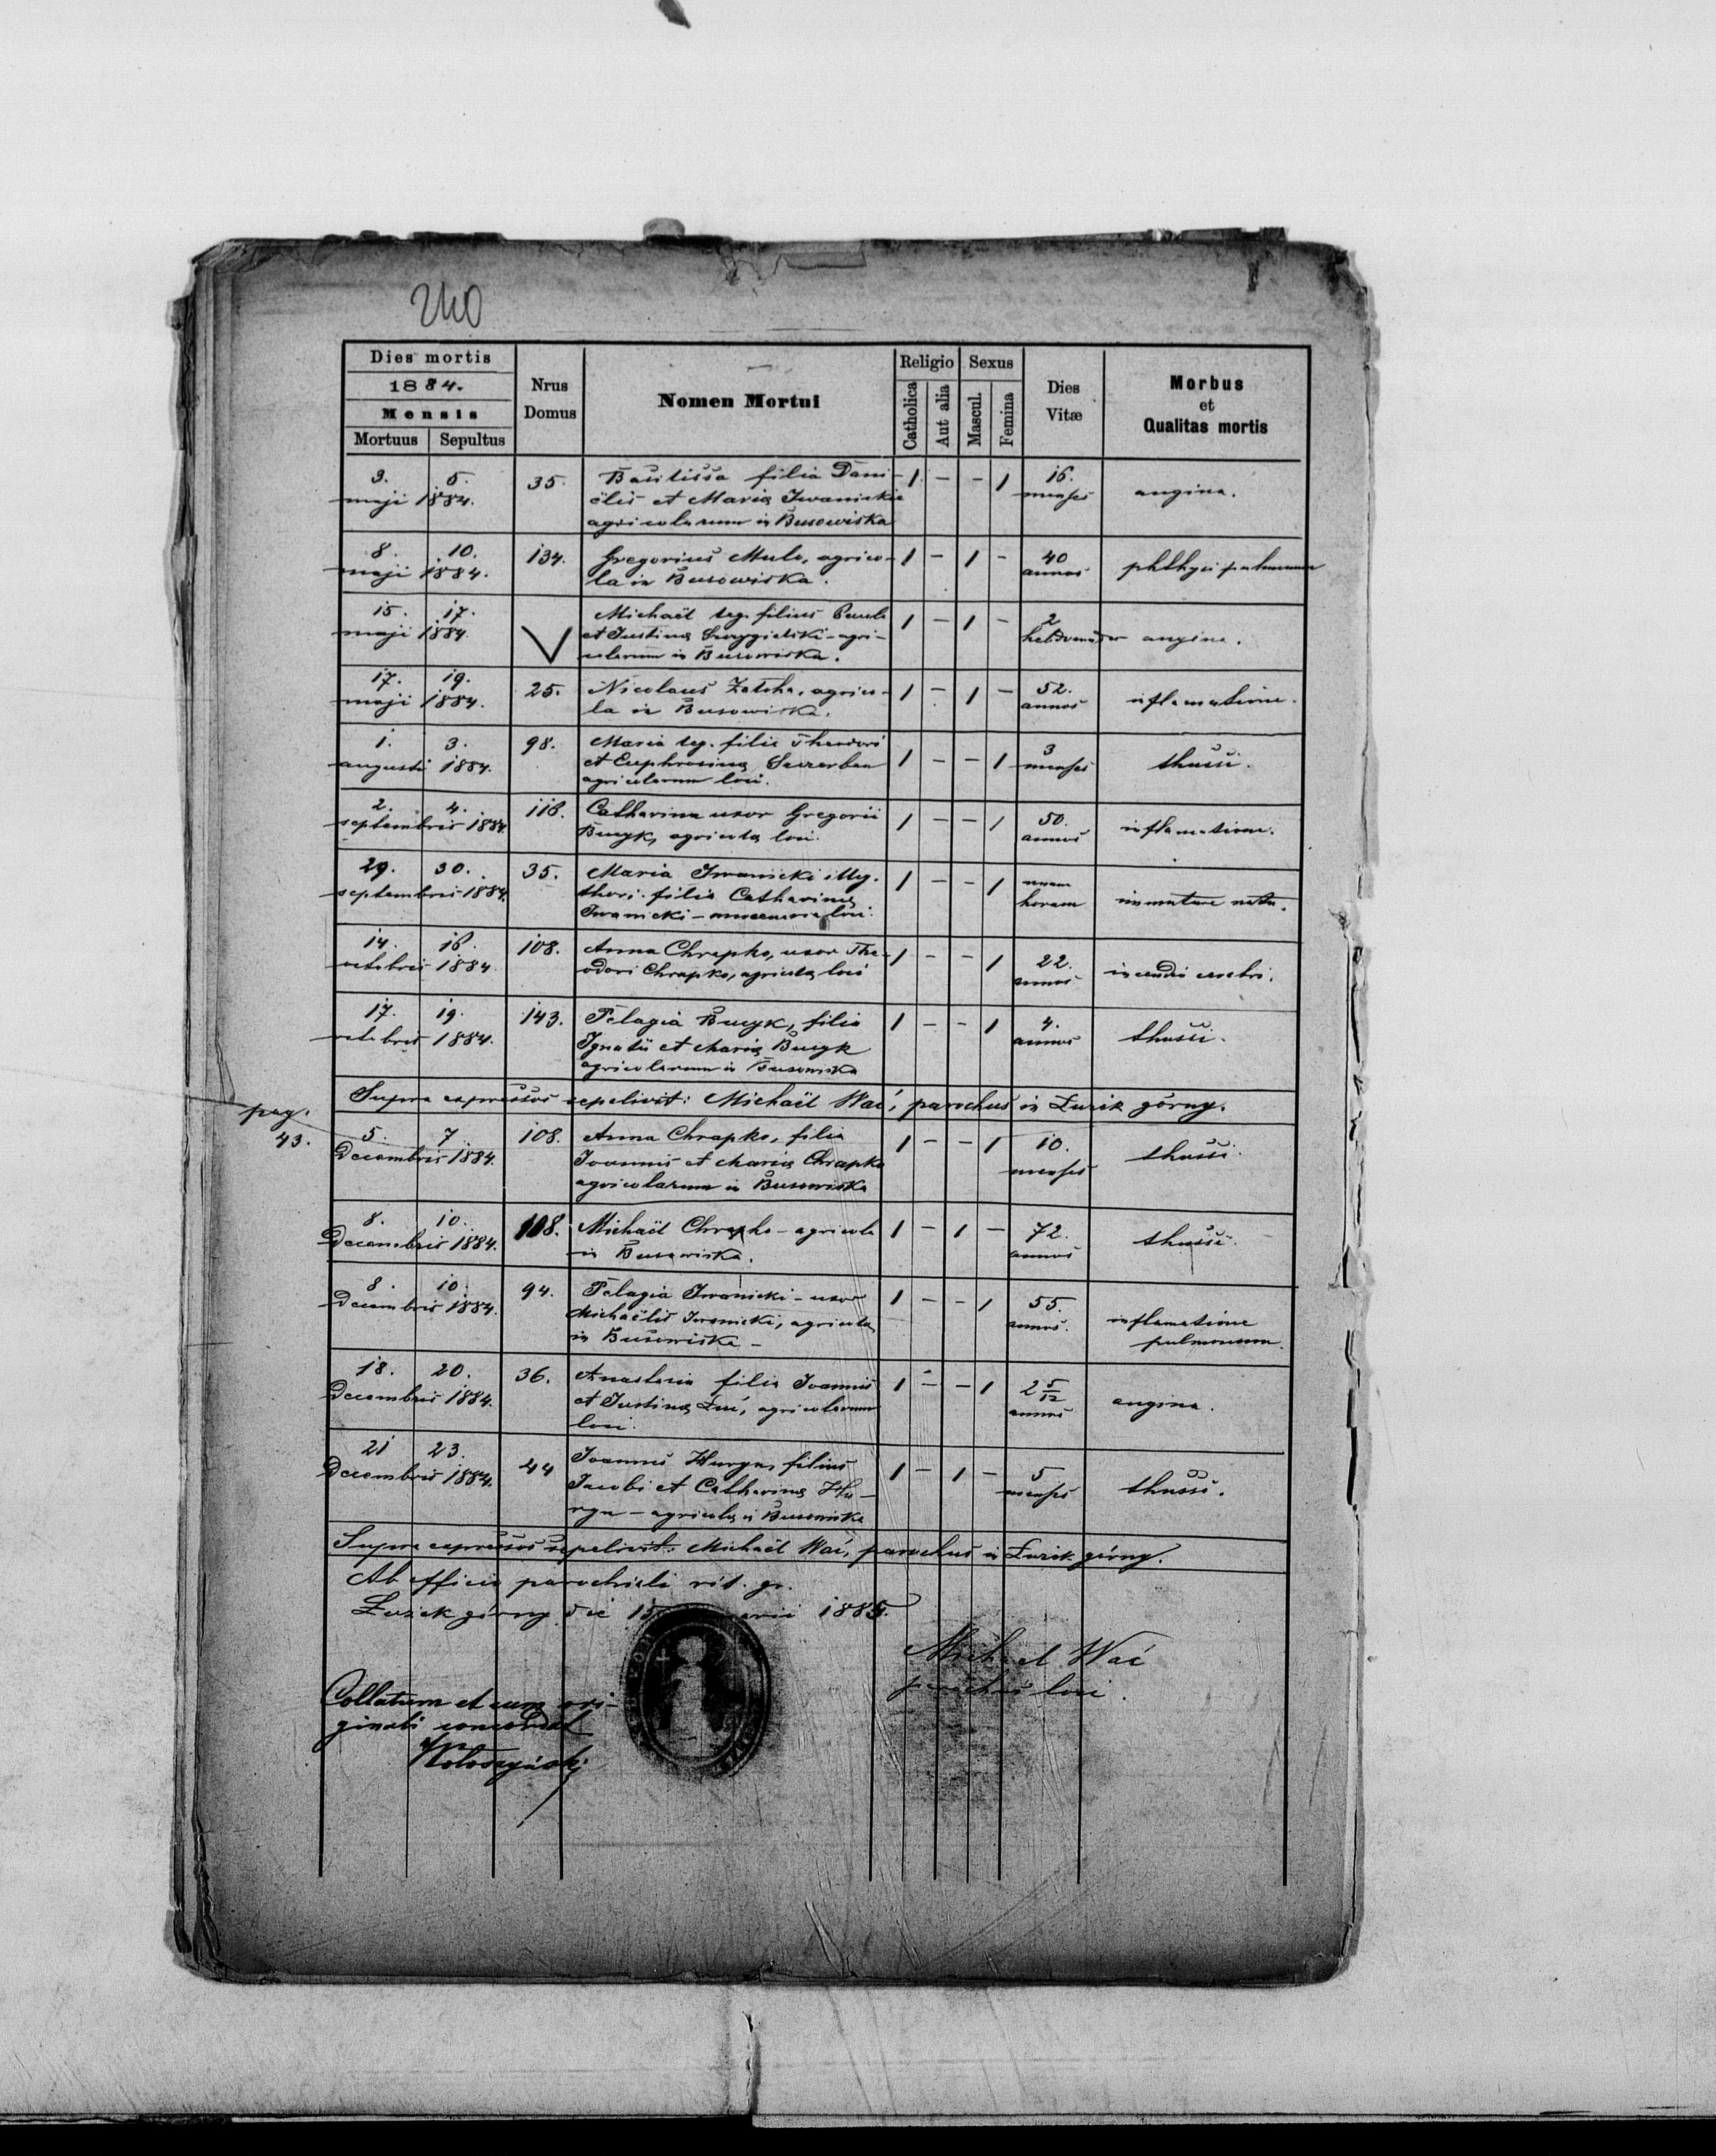 240
Dies mortis
1884.
Mensis
Mortuus Sepultus
Nrus Domus
Nomen Mortui
Religio
Catholica Aut alia
Sexus
Mascul. Femina
Dies Vitæ
Morbus et Qualitas mortis
3. 5. 35. Basilissa filia Dani- 1 - - 1 16.
maji 1884. ëlis et Maria Iwanickie menses angina.
agricolarum in Busowiska
8. 10. 134. Gregorius Mulo, agrico- 1 - 1 - 40
maji 1884. la in Busowiska. annos phthysi pulmonum
15. 17. Michaël leg. filius Pauli 1 - 1 - 2
maji 1884 V et Justina agri- angina.
colarum in Busowiska.
17. 19. 25. Nicolaus agrico- 1 - 1 - 52.
maji 1884. la in Busowiska. annos inflamatione.
1. 3. 98. Maria leg. filia Theodori 1 - - 1 3
augusti 1884. et Euphrosina menses thussi.
agricolarum loci.
2. 4. 118. Catharina uxor Gregorii 1 - - 1 50.
septembris 1884. Bucyk, agricola loci. annos inflamatione.
29. 30. 35. Maria Iwanicki illeg. 1 - - 1 unam
septembris 1884. thori. filia Catharina horam immature nata.
Iwanicki - loci.
14. 16. 108. Anna Chrapko, uxor The- 1 - - 1 22.
octobris 1884. odori Chrapko, agricola loci annos incendio cerebri.
17. 19. 143. Pelagia Bucyk, filia 1 - - 1 4.
octobris 1884. Ignatii et Maria Bucyk annos thussi.
agricolarum in Busowiska
Supra expressos sepelivit: Michaël Wać, parochus in Łużek górny.
pag.
43.
5. 7 108. Anna Chrapko, filia 1 - - 1 10.
Decembris 1884. Joannis et Maria Chrapko menses thussi.
agricolarum in Busowiska
8. 10. 108. Michaël Chrapko - agricola 1 - 1 - 72.
Decembris 1884. in Busowiska. annos thussi.
8. 10 94. Pelagia Iwanicki - uxor 1 - - 1 55.
Decembris 1884. Michaëlis Iwanicki, agricola annos. inflamatione
in Busowiska - pulmonum.
18. 20. 36. Anastasia filia Joannis 1 - - 1 2 5/12
Decembris 1884. et Justina agricolarum annos angina.
loci.
21 23. 44 Joannes Hurga, filius 1 - 1 - 5
Decembris 1884. Jacobi et Catharina Hu- menses thussi.
rga - agricola in Busowiska
Supra expressos sepelivit: Michaël Wać, parochus in Łużek górny.
Ab officio parochiali rit. gr.
Łużek górny die 15 1885.
Michael Wać
parochus loci.
Collatum et cum ori-
ginali concordat